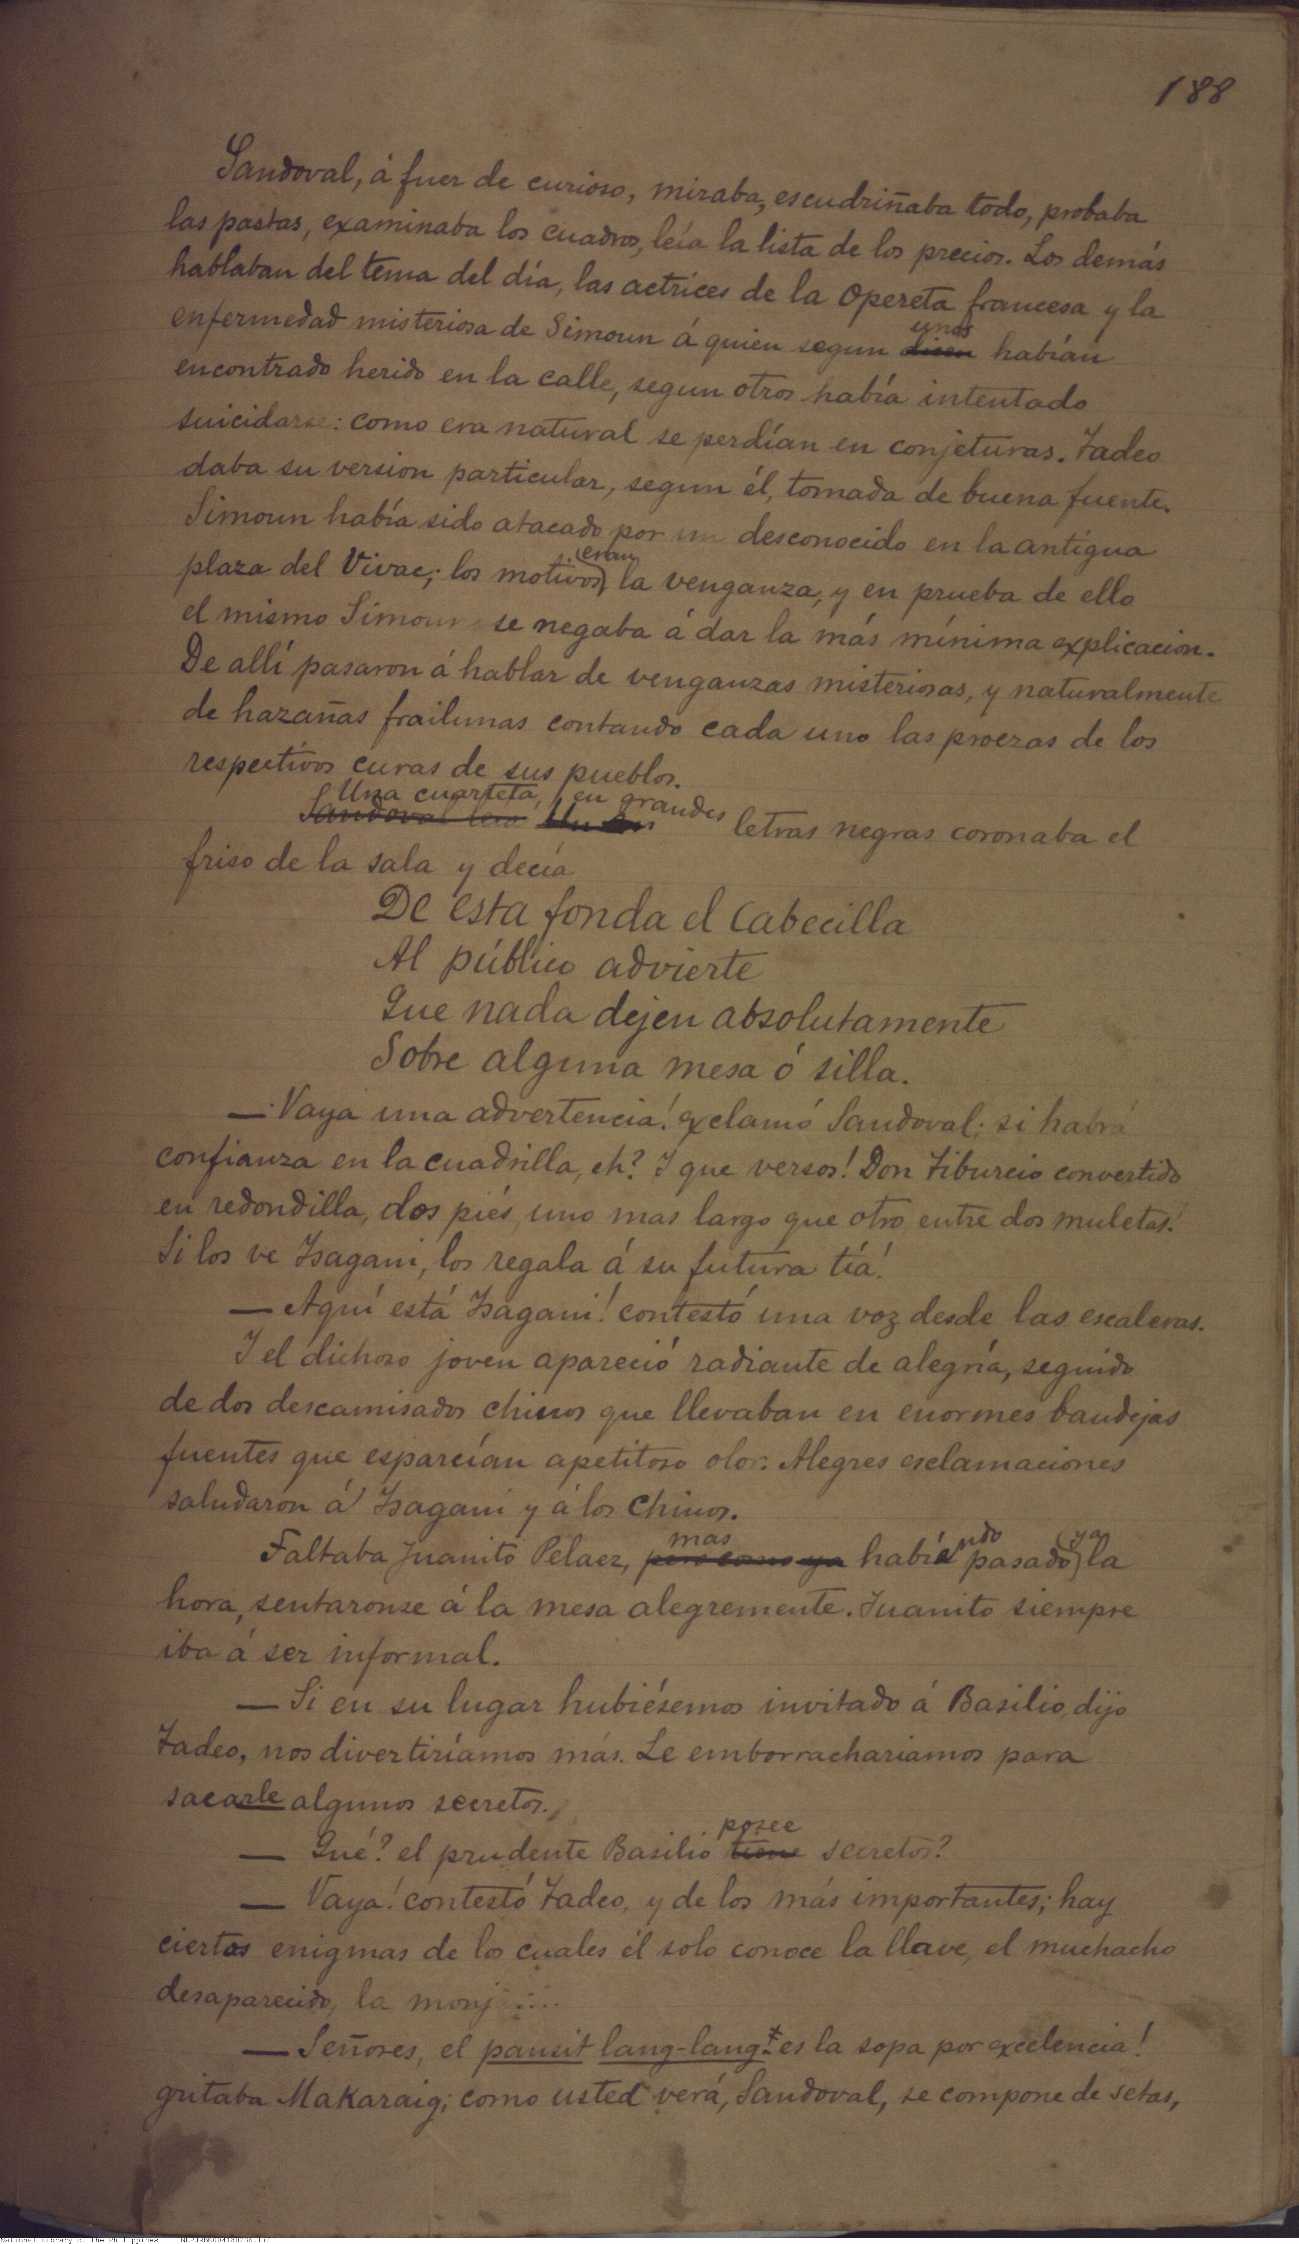 188
Sandoval, á fuer de curioso, miraba, escudriñaba todo, probaba
las pastas, examinaba los cuadros, leía la lista de los precios. Los demás
hablaban del tema del día, las actrices de la Opereta francesa y la
enfermedad misteriosa de Simoun á quien segun dicen unos habían
encontrado herido en la calle, segun otros había intentado
suicidarse: como era natural se perdían en conjeturas. Tadeo
daba su version particular, segun él, tomada de buena fuente.
Simoun había sido atacado por un desconocido en la antigua
plaza del Vivac; los motivos eran la venganza, y en prueba de ello
el mismo Simoun se negaba á dar la más mínima explicacion.
De allí pasaron á hablar de venganzas misteriosas, y naturalmente
de hazañas frailunas contando cada uno las proezas de los
respectivos curas de sus pueblos.
Una cuarteta, en grandes
Sandoval letras negras coronaba el
friso de la sala y decía
De esta fonda el cabecilla
Al público advierte
Que nada dejen absolutamente
Sobre alguna mesa ó silla.
— Vaya una advertencia! exclamó Sandoval; si habrá
confianza en la cuadrilla, eh? I que versos! Don Tiburcio convertido
en redondilla, dos piés, uno mas largo que otro, entre dos muletas!
Si los ve Isagani, los regala á su futura tía!
— Aquí está Isagani! contestó una voz desde las escaleras.
I el dichoso joven apareció radiante de alegría, seguido
de dos descamisados chinos que llevaban en enormes bandejas
fuentes que esparcían apetitoso olor. Alegres esclamaciones
saludaron á Isagani y á los chinos.
Faltaba Juanito Pelaez, pero como ya mas habiendo pasado ya la
hora, sentaronse á la mesa alegremente. Juanito siempre
iba á ser informal.
— Si en su lugar hubiésemos invitado á Basilio, dijo
Tadeo, nos divertiríamos más. Le emborrachariamos para
sacarle algunos secretos.
— Qué? el prudente Basilio tiene posee secretos?
— Vaya! contestó Tadeo, y de los más importantes; hay
ciertos enigmas de los cuales él solo conoce la llave, el muchacho
desaparecido, la monja....
— Señores, el pansit lang-lang es la sopa por excelencia!
gritaba Makaraig; como usted verá, Sandoval, se compone de setas,
National Library of the Philippines